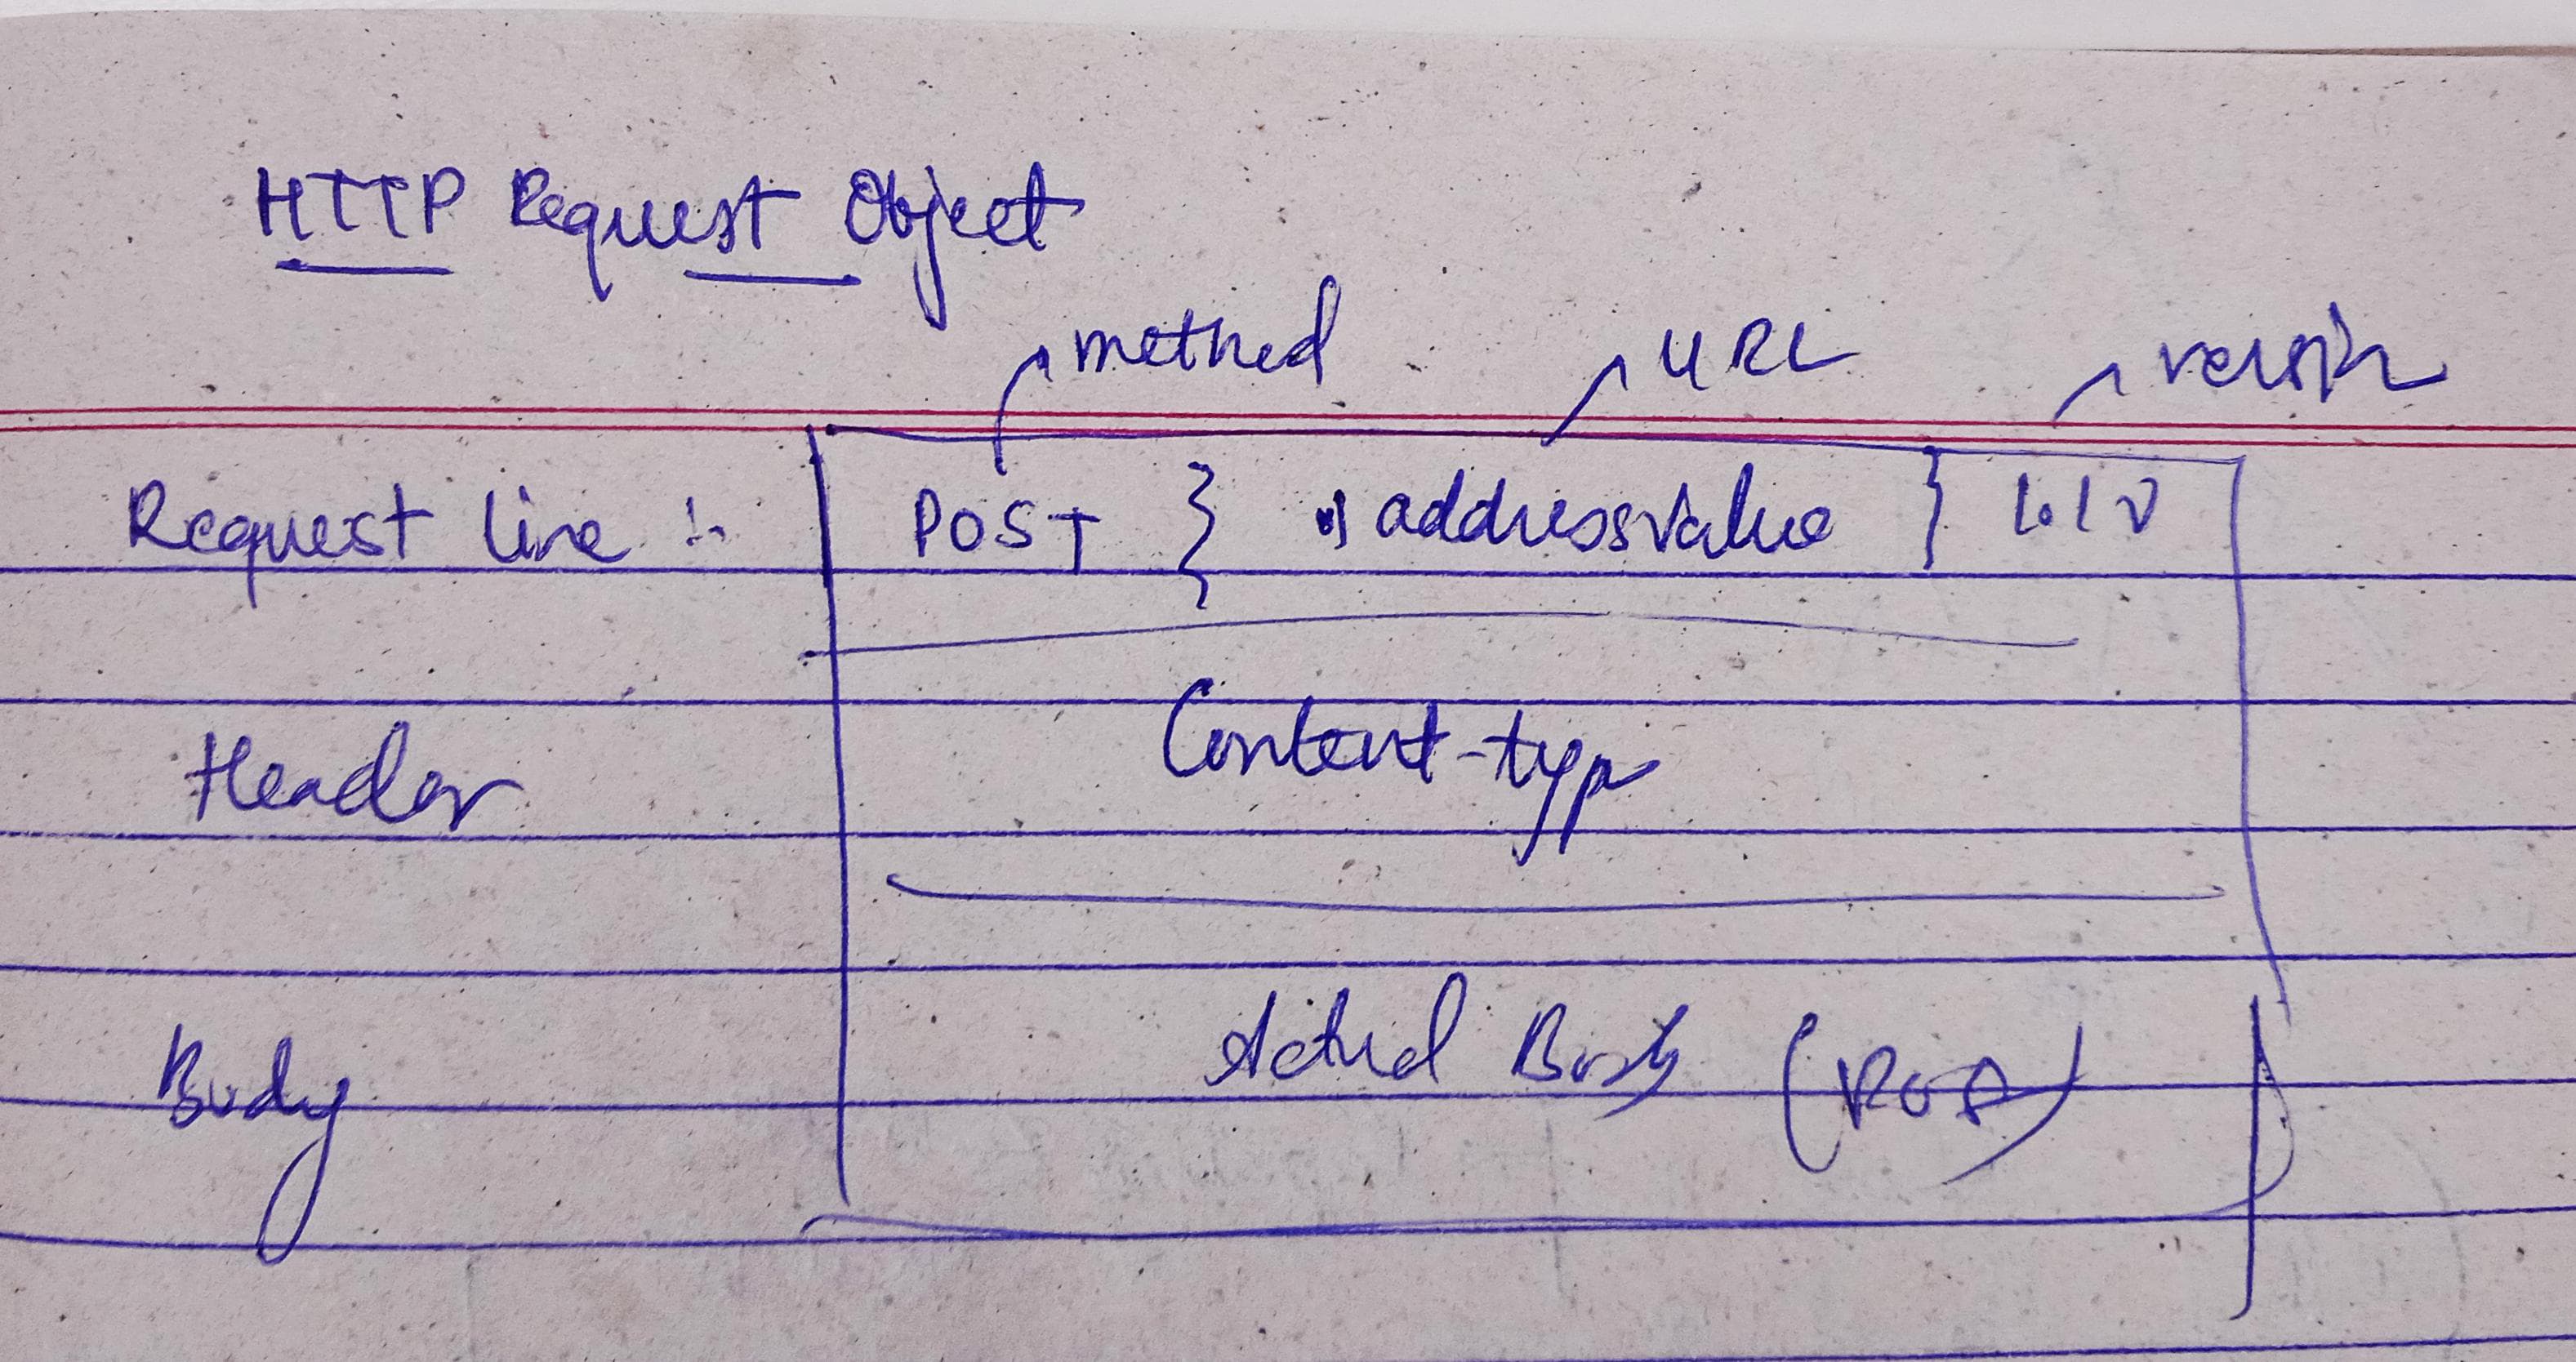 HTTP Request Object
method URL version
Request line :- POST } addressvalue } 1.1 v
Header Content-typ
Body Actual Body